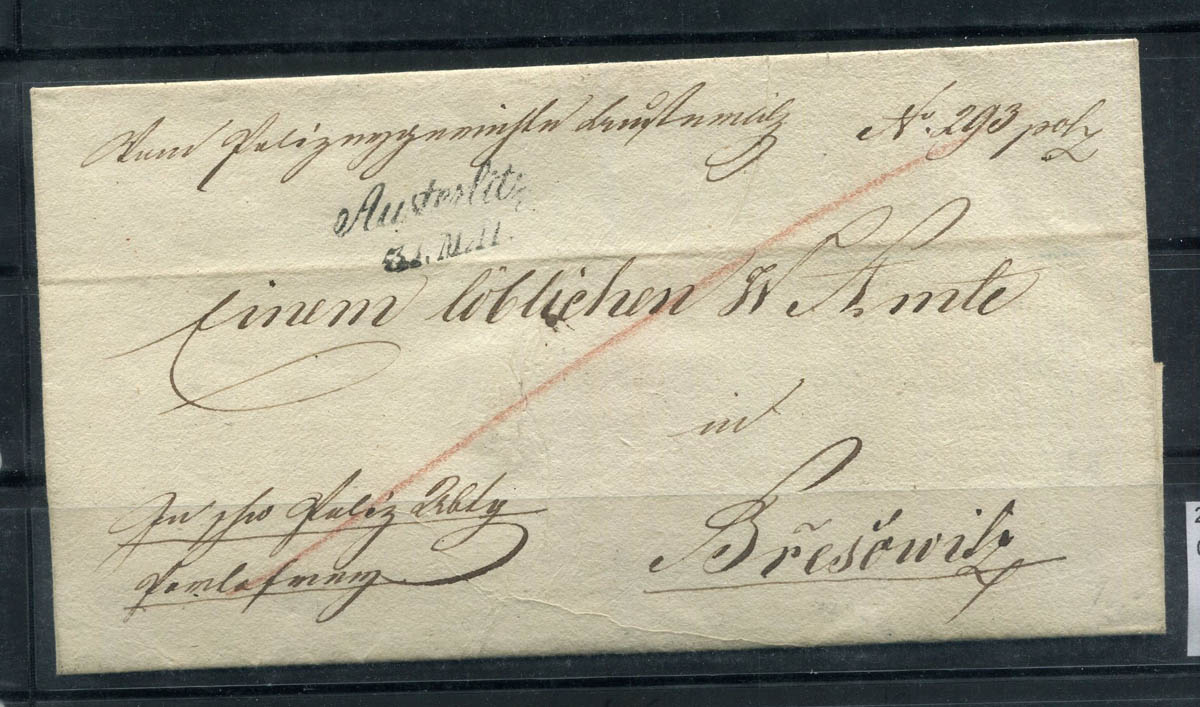 Vom Polizeygerichte Austerlitz No. 293 pol
Austerlitz
31. MAI.
Einem löblichen W Amte
in
Břesowitz
In Poliz